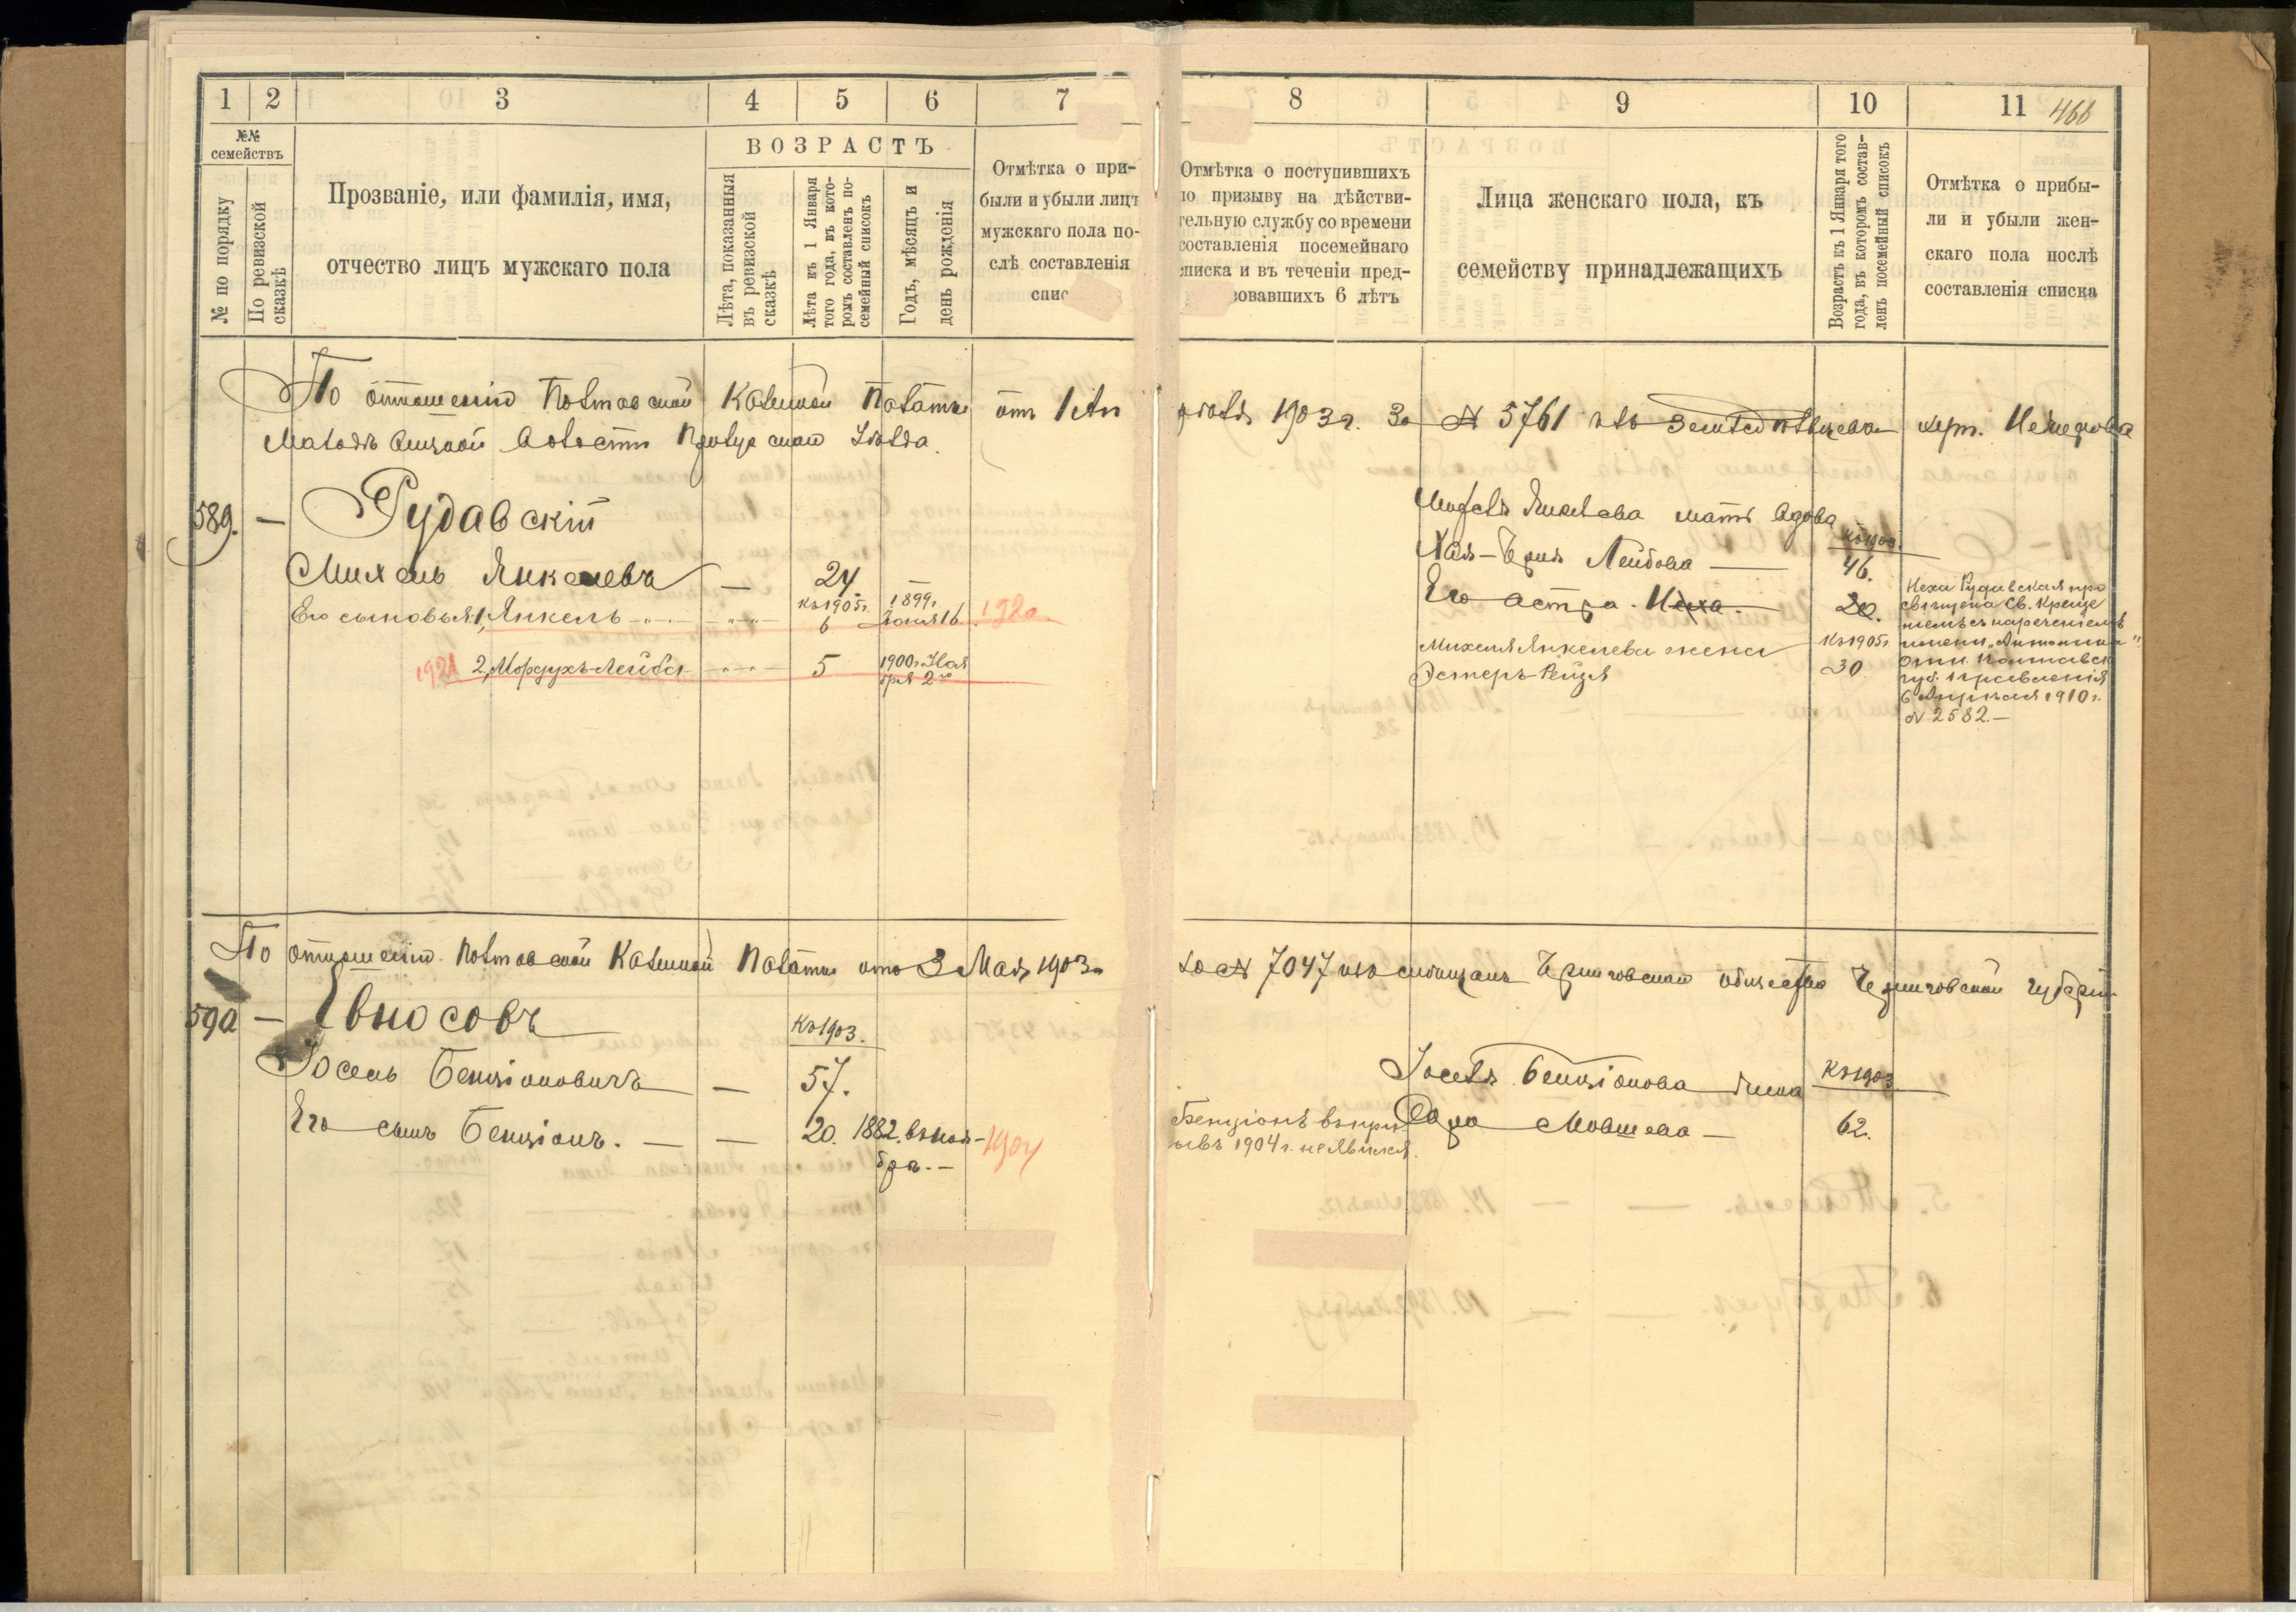 1 2 3 4 5 6 7 8 9 10 11 466
№№ семействъ
№ по порядку
По ревизской сказкѣ
Прозваніе, или фамилія, имя,
отчество лицъ мужскаго пола
ВОЗРАСТЪ
Лѣта, показанныя
въ ревизской
сказкѣ
Лѣта къ 1 Января
того года, въ кото-
ромъ составленъ по-
семейный списокъ
Годъ, мѣсяцъ и
день рожденія
Отмѣтка о при-
были и убыли лицъ
мужскаго пола по-
слѣ составленія
спис
Отмѣтка о поступившихъ
по призыву на дѣйстви-
тельную службу со времени
составленія посемейнаго
списка и въ теченіи пред-
зовавшихъ 6 лѣтъ
Лица женскаго пола, къ
семейству принадлежащихъ
Возрастъ къ 1 Января того
года, въ которомъ состав-
ленъ посемейный списокъ
Отмѣтка о прибы-
ли и убыли жен-
скаго пола послѣ
составленія списка
По отношенію Полтавской Казенной Палаты отъ 1 Ап рѣля 1903 г. За № 5761 изъ Земледѣльцевъ
волости уѣзда.
589. — Рудавскій
Михель Янкелевъ — 24
Его сыновья: 1, Янкель къ 1905г. 6 1899г. Іюня 16 1920
1921 2, Мордухъ-Лейба 5 1900г. Ноя
бря 2го
Михеля Янкелева мать вдова
Хая- Лейбова — къ 1903 46.
Его сестра. Неха. 20.
Михеля Янкелева жена къ 1905г
Эстеръ-Рейзя 30.
Неха Рудавская про
свѣщена Св. Креще
ніемъ съ нареченіемъ
имени „Антонина"
отн. Полтавск
губ. правленія
6 Апрѣля 1910 г.
№ 2582.—
По отношенію Полтавской Казенной Палаты отъ 3 Мая 1903 за № 7047 изъ мѣщанъ Черниговскаго общества Черниговской губерніи
590 — Евносовъ
къ 1903.
Іосель Бенціоновичъ — 57.
Его сынъ Бенціонъ. — — 20. 1882. въ ноя-
брѣ. — 1904
Бенціонъ въ приз
ывъ 1904 г. не явился.
Іоселя Бенціонова жена къ 1903
Сара Мовшева — 62.